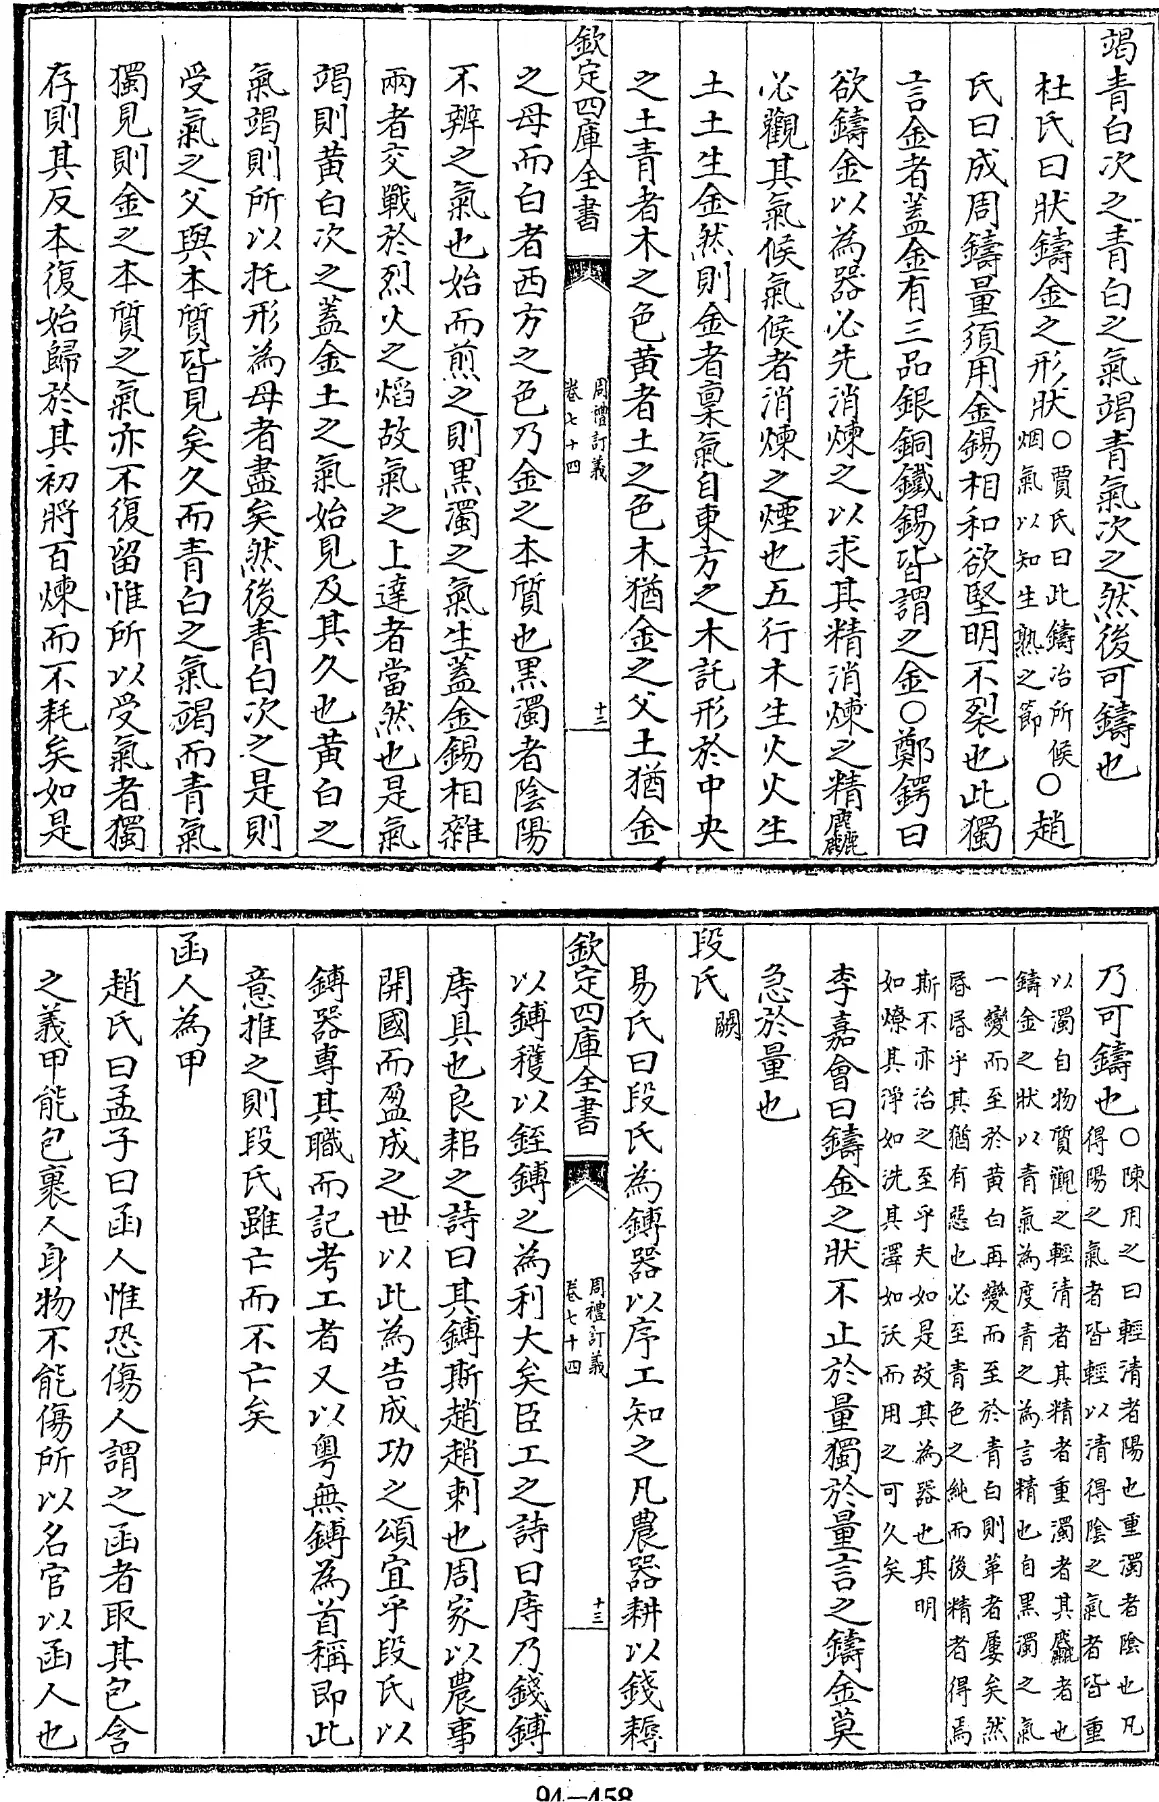 竭青白次之青白之氣竭青氣次之然後可鑄也
杜氏曰狀鑄金之形狀○賈氏曰此鑄冶所候烟氣以知生熟之節○趙
氏曰成周鑄量須用金錫相和欲堅明不裂也此獨
言金者蓋金有三品銀銅鐵錫皆謂之金○鄭鍔曰
欲鑄金以為器必先消煉之以求其精消煉之精麤
必觀其氣候氣候者消煉之煙也五行木生火火生
土土生金然則金者稟氣自東方之木託形於中央
之土青者木之色黄者土之色木猶金之父土猶金
欽定四庫全書
周禮訂義
卷七十四
十三
之母而白者西方之色乃金之本質也黒濁者陰陽
不辨之氣也始而煎之則黒濁之氣生蓋金錫相雜
兩者交戰於烈火之熖故氣之上達者當然也是氣
竭則黄白次之蓋金土之氣始見及其久也黄白之
氣竭則所以托形為母者盡矣然後青白次之是則
受氣之父與本質皆見矣久而青白之氣竭而青氣
獨見則金之本質之氣亦不復留惟所以受氣者獨
存則其反本復始歸於其初將百煉而不耗矣如是
乃可鑄也○陳用之曰輕清者陽也重濁者陰也凡
得陽之氣者皆輕以清得陰之氣者皆重
以濁自物質觀之輕清者其精者重濁者其麤者也
鑄金之狀以青氣為度青之為言精也自黒濁之氣
一變而至於黄白再變而至於青白則革者屢矣然
㫺㫺乎其猶有惡也必至青色之純而後精者得焉
斯不亦治之至乎夫如是故其為器也其明
如燎其淨如洗其澤如沃而用之可久矣
李嘉會曰鑄金之狀不止於量獨於量言之鑄金莫
急於量也
段氏闕
易氏曰段氏為鎛器以序工知之凡農器耕以錢耨
欽定四庫全書
周禮訂義
卷七十四
十三
以鎛穫以銍鎛之為利大矣臣工之詩曰庤乃錢鎛
庤具也良耜之詩曰其鎛斯趙趙刺也周家以農事
開國而盈成之世以此為告成功之頌宜乎段氏以
鎛器專其職而記考工者又以粤無鎛為首稱即此
意推之則段氏雖亡而不亡矣
函人為甲
趙氏曰孟子曰函人惟恐傷人謂之函者取其包含
之義甲能包裹人身物不能傷所以名官以函人也
94-458